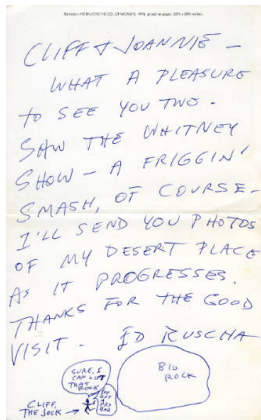 CLIFF & JOANNIE —
WHAT A PLEASURE
TO SEE YOU TWO.
SAW THE WHITNEY
SHOW — A FRIGGIN'
SMASH, OF COURSE —
I'LL SEND YOU PHOTOS
OF MY DESERT PLACE
AS IT PROGRESSES.
THANKS FOR THE GOOD
VISIT. ED RUSCHA
SURE, I
CAN LIFT
THAT
ROCK
BIG
ROCK
CLIFF,
THE JOCK